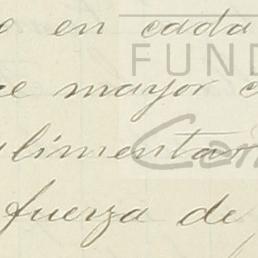 en cada
FUND
mayor
alimentar
fuerza de